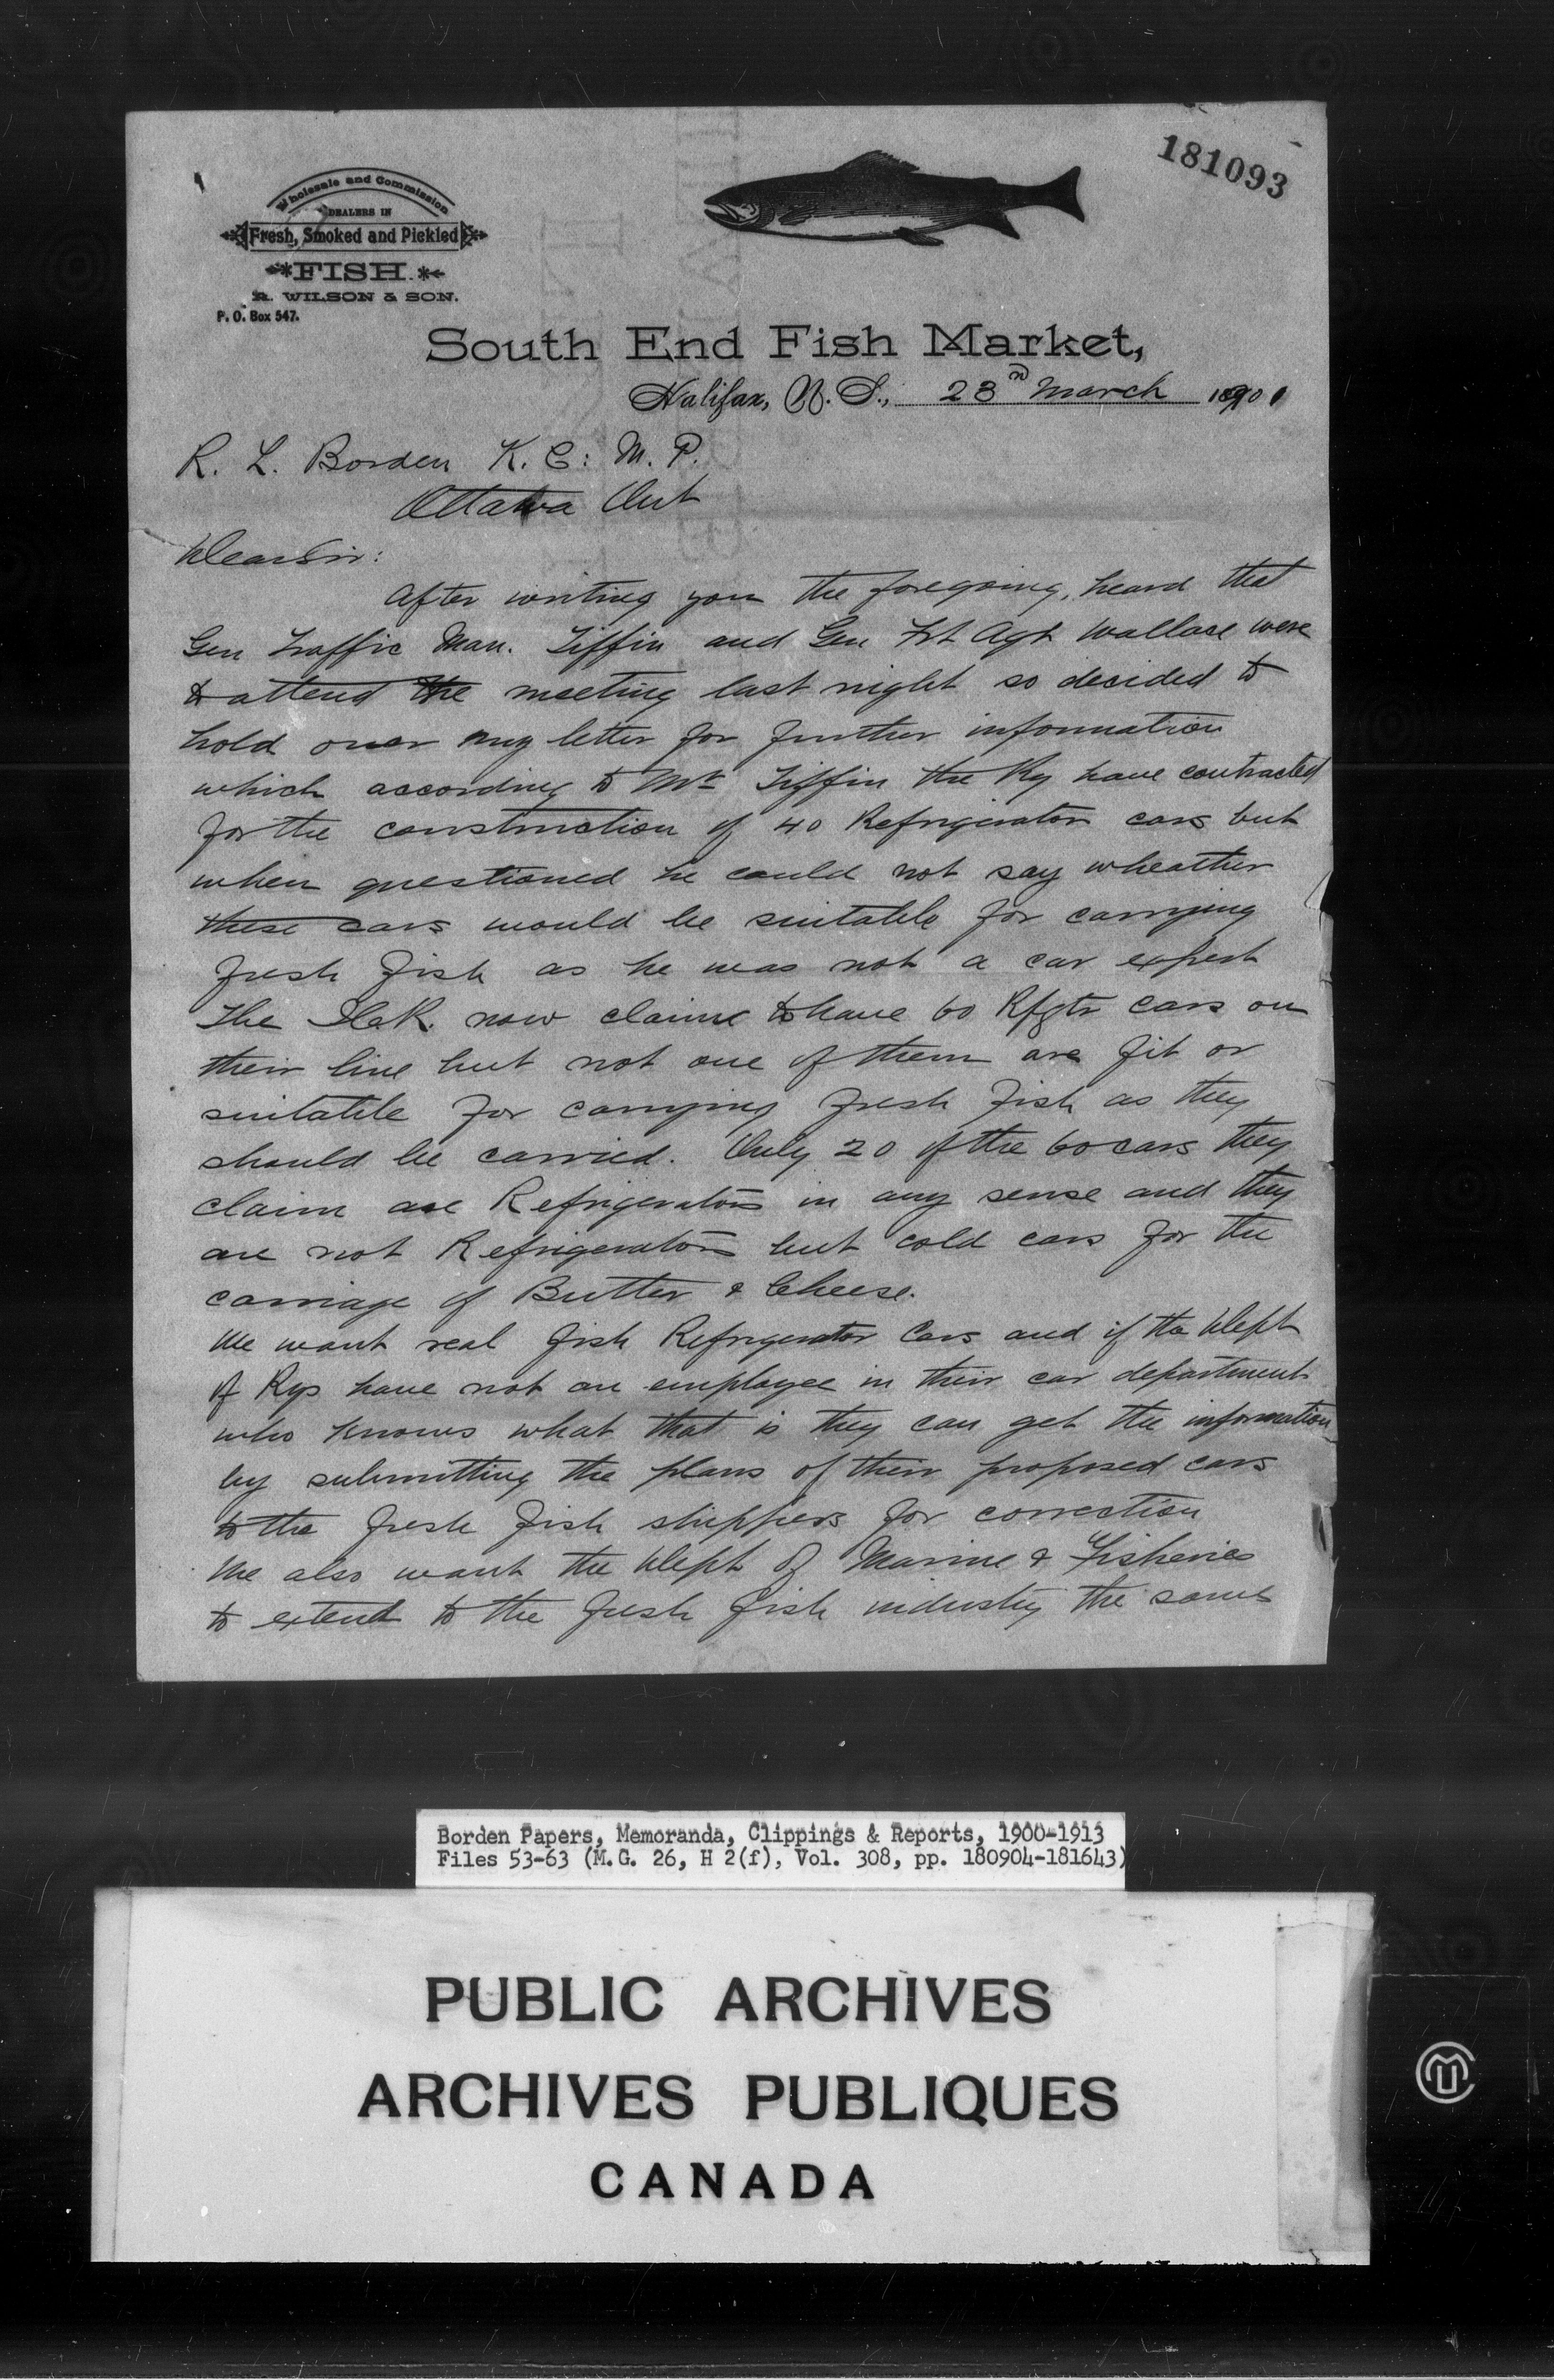 181093
Wholesale and Commission
DEALERS IN
Fresh, Smoked and Pickled
FISH.
R. WILSON & SON.
P. O. Box 547.
South End Fish Market,
Halifax, N. S., 23rd March 1901
R. L. Borden K. C: M. P.
Ottawa Ont
Dear Sir:
After writing you the foregoing, heard that
Gen Traffic Man. Tiffin and Gen Frt Agt Wallace were
to attend the meeting last night so decided to
hold over my letter for further information
which according to Mr Tiffin the Ry have contracted
for the construction of 40 Refrigerator cars but
when questioned he could not say wheather
these cars would be suitable for carrying
fresh fish as he was not a car expert
The I.C.R. now claims to have 60 Rfgtr cars on
their line but not one of them are fit or
suitable for carrying fresh fish as they
should be carried. Only 20 of the 60 cars they
claim are Refrigerators in any sense and they
are not Refrigerators but cold cars for the
carriage of Butter & Cheese.
We want real fish Refrigerator Cars and if the Dept
of Rys have not an employee in their car department
who knows what that is they can get the information
by submitting the plans of their proposed cars
to the fresh fish shippers for correction
We also want the Dept of Marine & Fisheries
to extend to the fresh fish industry the same
Borden Papers, Memoranda, Clippings & Reports, 1900-1913
Files 53-63 (M.G. 26, H 2(f), Vol. 308, pp. 180904-181643)
PUBLIC ARCHIVES
ARCHIVES PUBLIQUES
CANADA